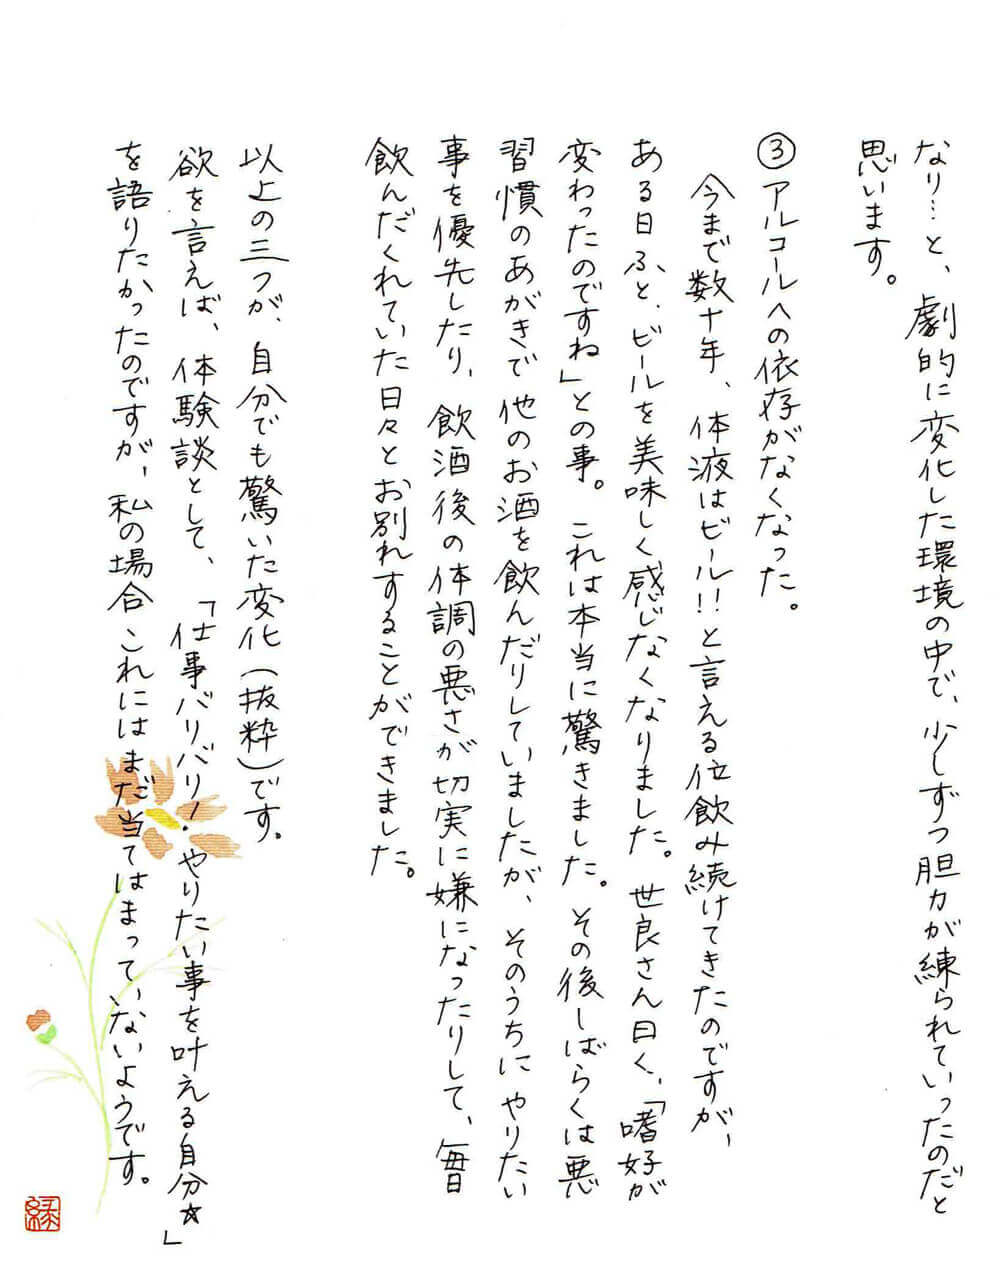 なり…と、劇的に変化した環境の中で、少しずつ胆力が練られていったのだと
思います。
③アルコールへの依存がなくなった。
今まで数十年、体液はビール!!と言える位飲み続けてきたのですが、
ある日ふと、ビールを美味しく感じなくなりました。世良さん曰く、「嗜好が
変わったのですね」との事。これは本当に驚きました。その後しばらくは悪
習慣のあがきで他のお酒を飲んだりしていましたが、そのうちにやりたい
事を優先したり、飲酒後の体調の悪さが切実に嫌になったりして、毎日
飲んだくれていた日々とお別れすることができました。
以上の三つが、自分でも驚いた変化(抜粋)です。
欲を言えば、体験談として、「仕事バリバリ!やりたい事を叶える自分☆」
を語りたかったのですが、私の場合これにはまだ当てはまっていないようです。
縁